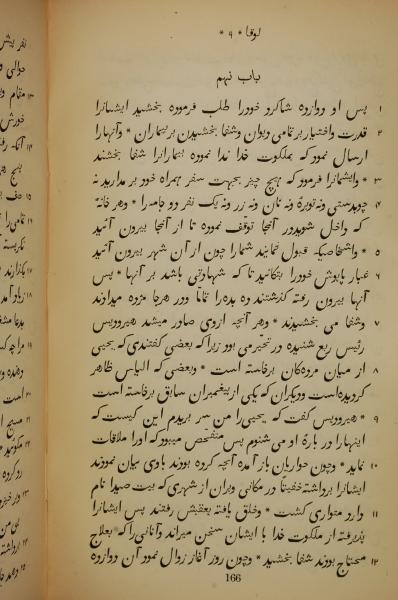 لوقا * ۹ *
باب نهم
۱ پس او دوازده شاگرد خودرا طلب فرموده بخشید ایشانرا
۲ قدرت واختیار بر تمامی دیوان وشفا بخشیدن بر بیماران * وآنهارا
ارسال نمود که بملکوت خدا ندا نموده بیمارانرا شفا بخشند
۳ * وایشانرا فرمود که هیچ چیز بجهت سفر همراه خود بر مدارید نه
۴ چوبدستی ونه توبره ونه نان ونه زر ونه یک نفر دو جامه را * وهر خانهٔ
که داخل شوید در آنجا توقف نموده تا از آنجا بیرون آئید
۵ * واشخاصیکه قبول ننمایند شمارا چون از آن شهر بیرون آئید
۶ غبار پاپوش خودرا بتکانید تا که شهادتی باشد بر آنها * پس
آنها بیرون رفته گذشتند ده بده را تماما ودر هرجا مژده میدادند
۷ وشفا می بخشیدند * وهر آنچه ازوی صادر میشد هیرودیس
رئیس ربع شنیده در تحیر می بود زیرا که بعضی گفتندی که یحیی
۸ از میان مردهکان برخاسته است * وبعضی که الیاس ظاهر
گردیده است ودیگران که یکی از پیغمبران سابق برخاسته است
۹ * هیرودیس گفت که یحیی را من سر بریدم این کیست که
اینهارا در بارهٔ او می شنوم پس متفحص میبود که اورا ملاقات
۱۰ نماید * وچون حواریان باز آمده آنچه کرده بودند باوی بیان نمودند
ایشانرا برداشته خفیتا در مکانی ویران از شهری که بیت صیدا نام
۱۱ دارد متواری گشت * وخلق یافته بعقبش رفتند پس ایشانرا
پذیرفته از ملکوت خدا با ایشان سخن میراند وآنانی را که بعلاج
۱۲ محتاج بودند شفا بخشید * وچون روز آغاز زوال نمود آن دوازده
166